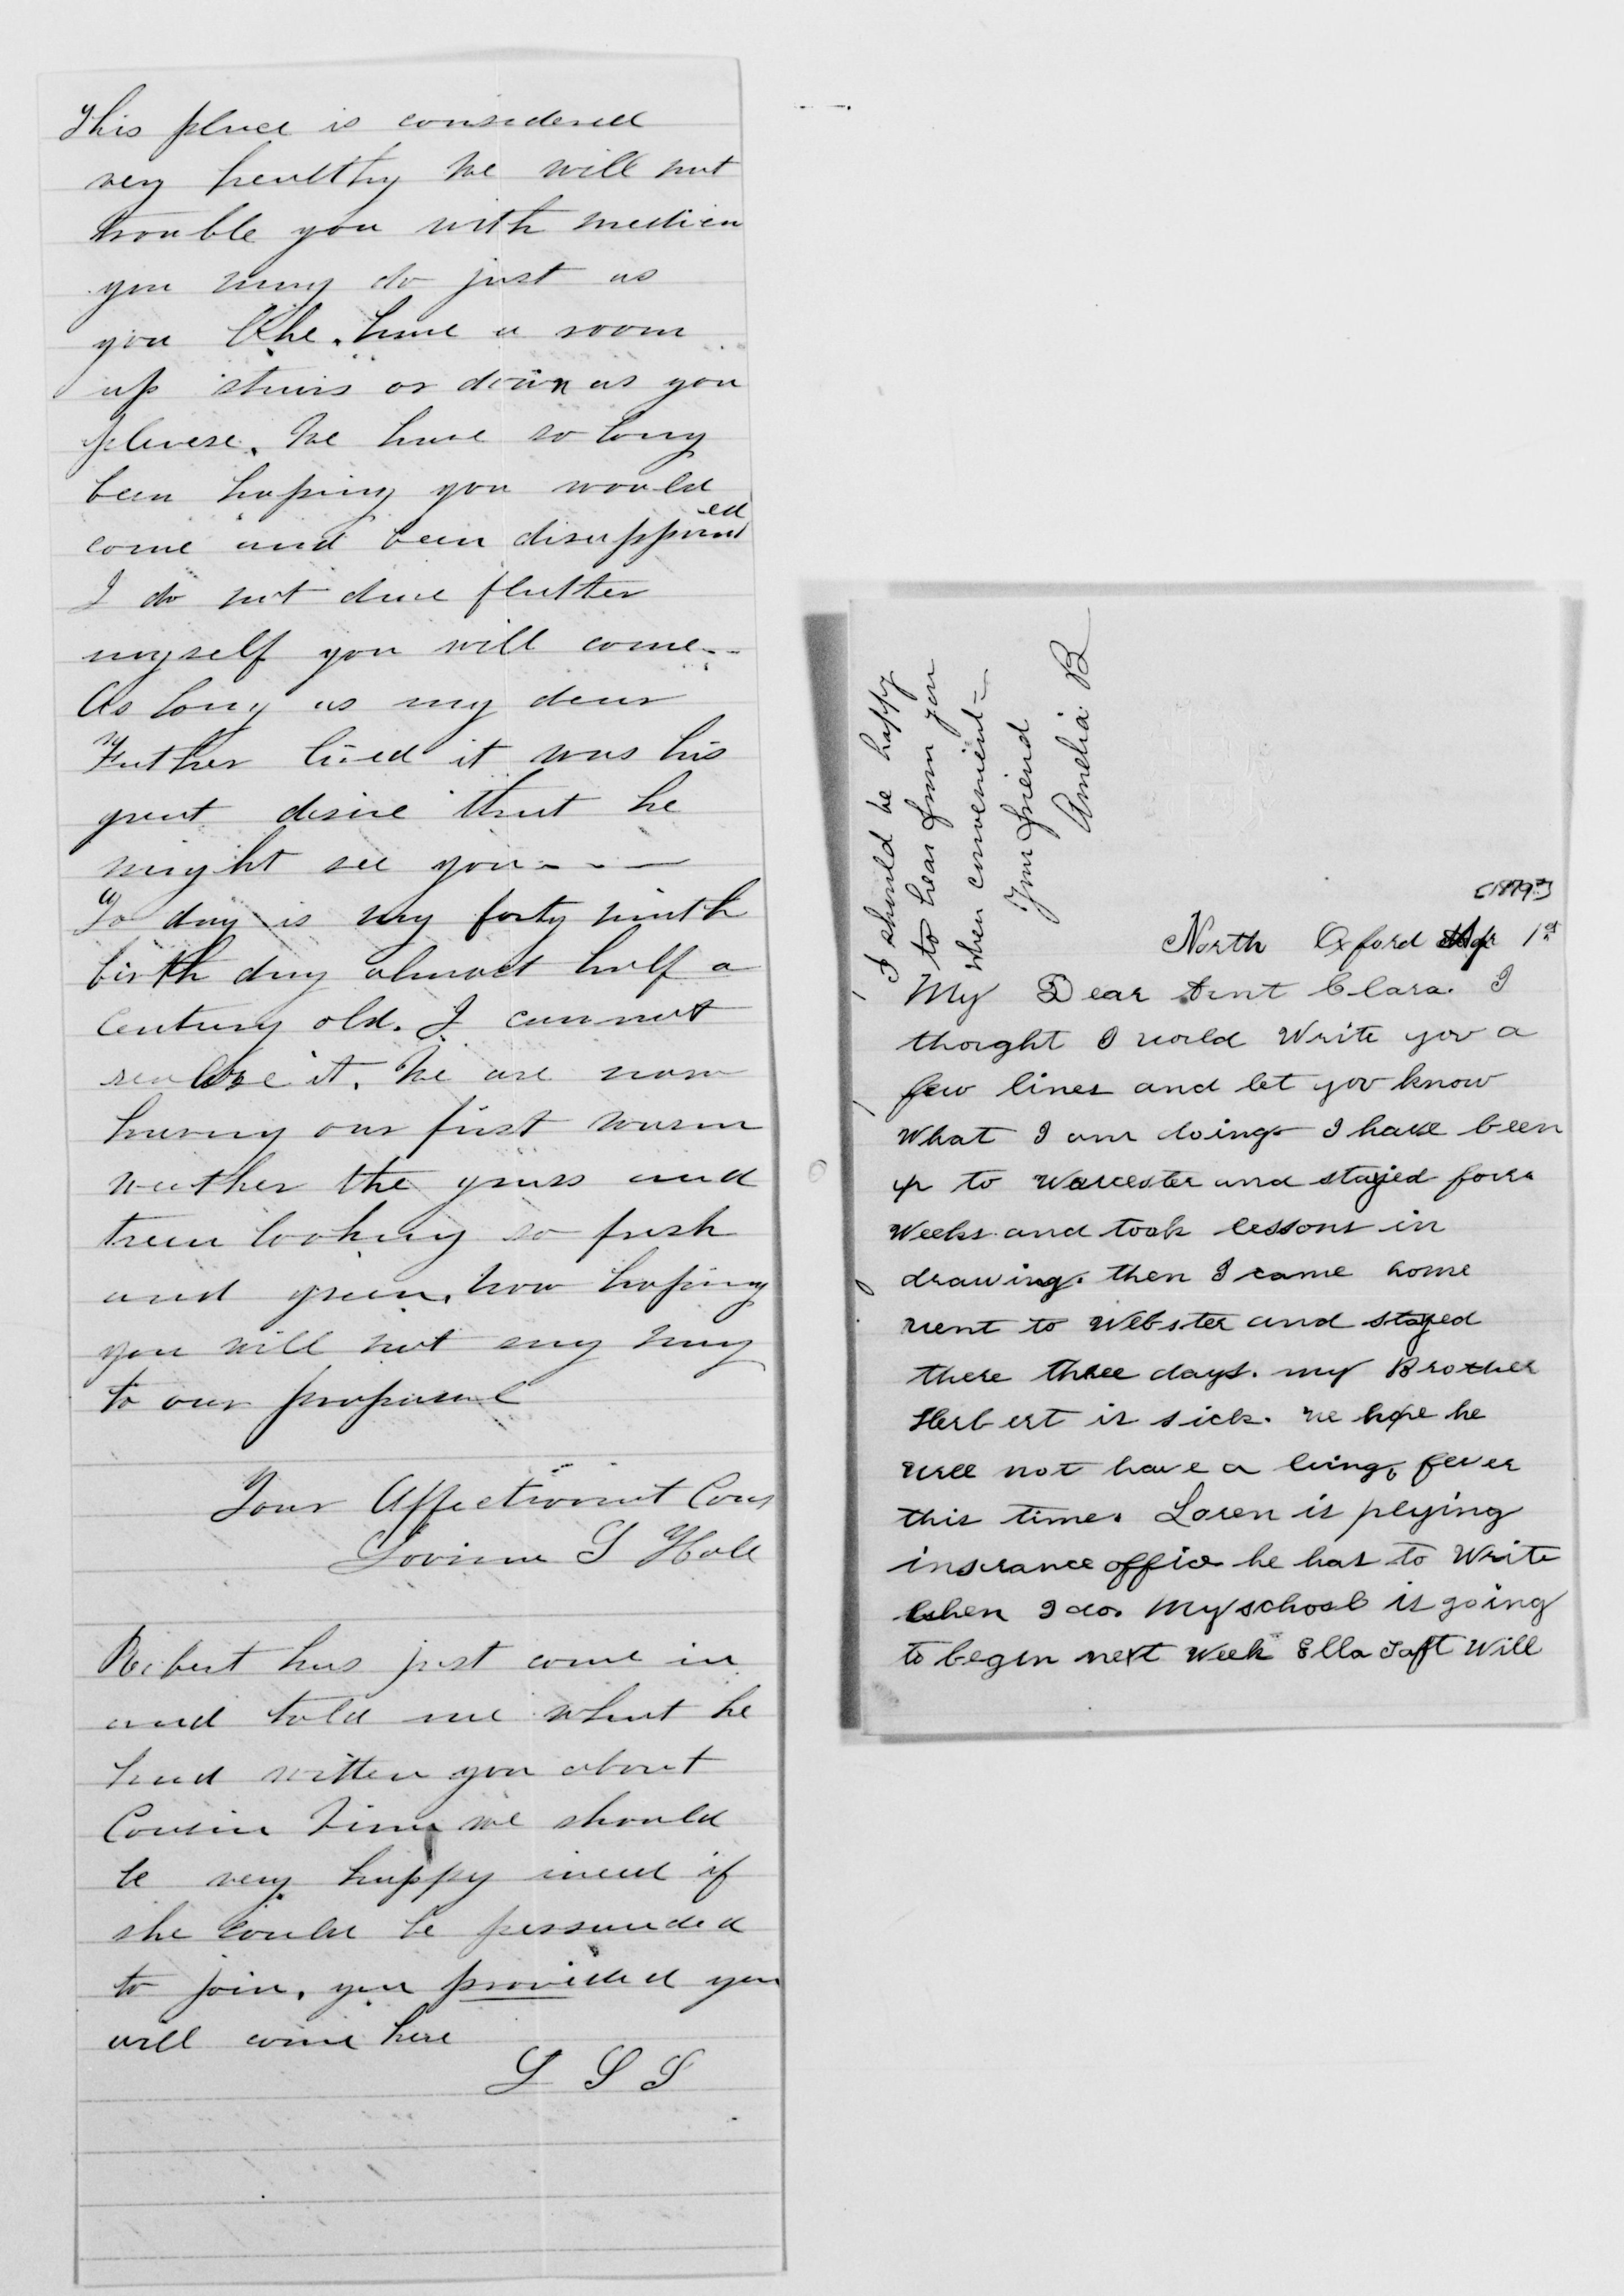 This place is considered
very healthy We will not
trouble you with medicin
you may do just as
you like. have a room
up stairs or down as you
pleaese. We have so long
been hoping you would
come and been disappointed
I do not dare flatter
myself you will come--
As long as my dear
Father lived it was his
great desire that he
might see you- - -
To day is my forty ninth
birth day almost half a
century old. I cannot
realise it. We are now
having our first warm
weather the grass and
trees looking so fresh
and green. now hoping
you will not say nay
to our proposal
Your Affectionat Cous
Lovinia S Hale
Robert has just come in
and told me what he
had written you about
Cousin we should
be very happy ineed if
she could be persuaded
to join. you provided you
will come here
L S S
I should be happy
to hear from you
when convenient-
Your friend
Amelia B
[1879?]
North Oxford Apr 1st
My Dear Aunt Clara. I
thoight I world Write yov a
few lines and let yov know
What I am doing. I have been
up to Warcester and stayed foura
Weeks and took lessons in
drawing. then I came home
went to Webster and stayed
there three days. my Brother
Herbert is sick. we hope he
will not have a lung fever
this time. Loren is plying
insurance office he has to Write
when I do. My school is going
to begin next Week Ella Taft Will